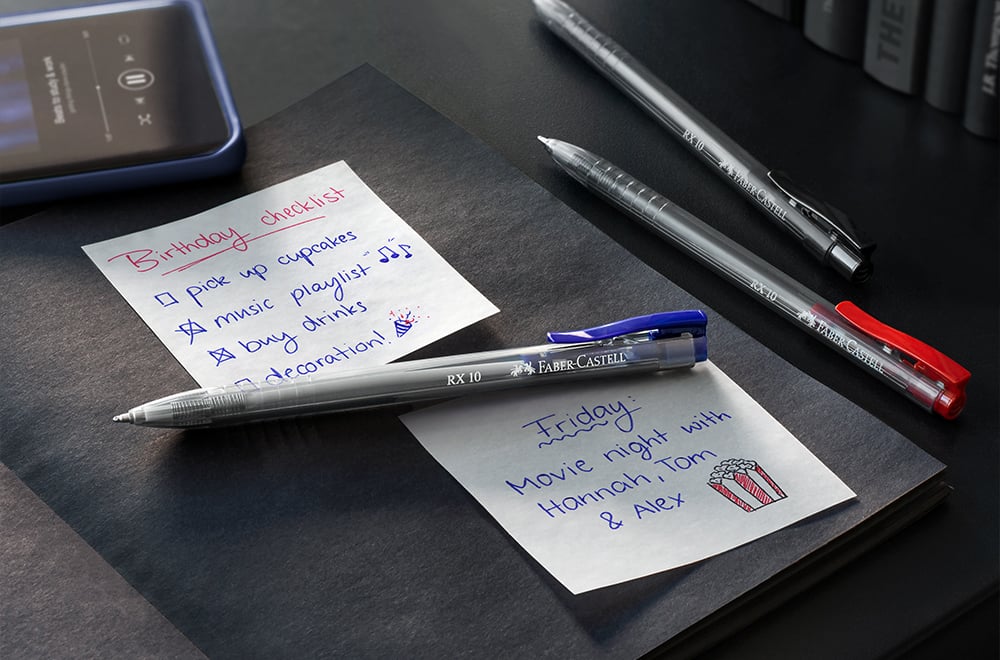 Beats to study & work
Birthday checklist
pick up cupcakes
music playlist
buy drinks
decoration!
RX 10 FABER-CASTELL
RX 10 FABER-CASTELL
RX 10 FABER-CASTELL
Friday:
Movie night with
Hannah, Tom
& Alex
THE